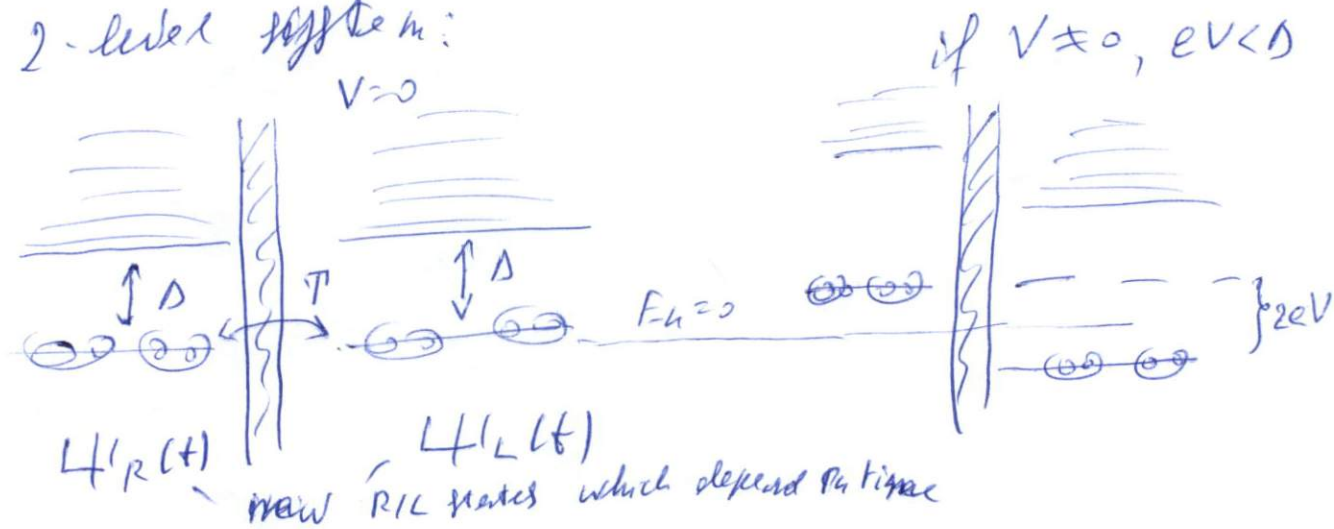 2-level system:
if V≠0, eV<Δ
V=0
Δ
T
Δ
E_n=0
}2eV
Ψ_R(t)
Ψ_L(t)
new R/L states which depend on time